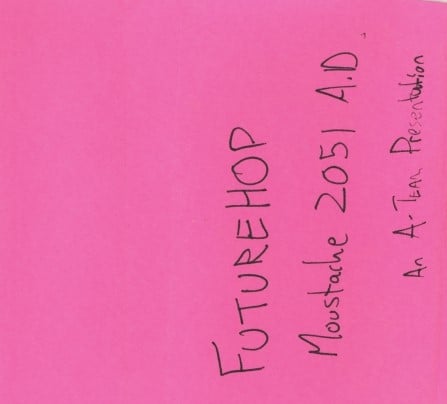 FUTUREHOP
Moustache 2051 A.D.
An A-TEAM Presentation